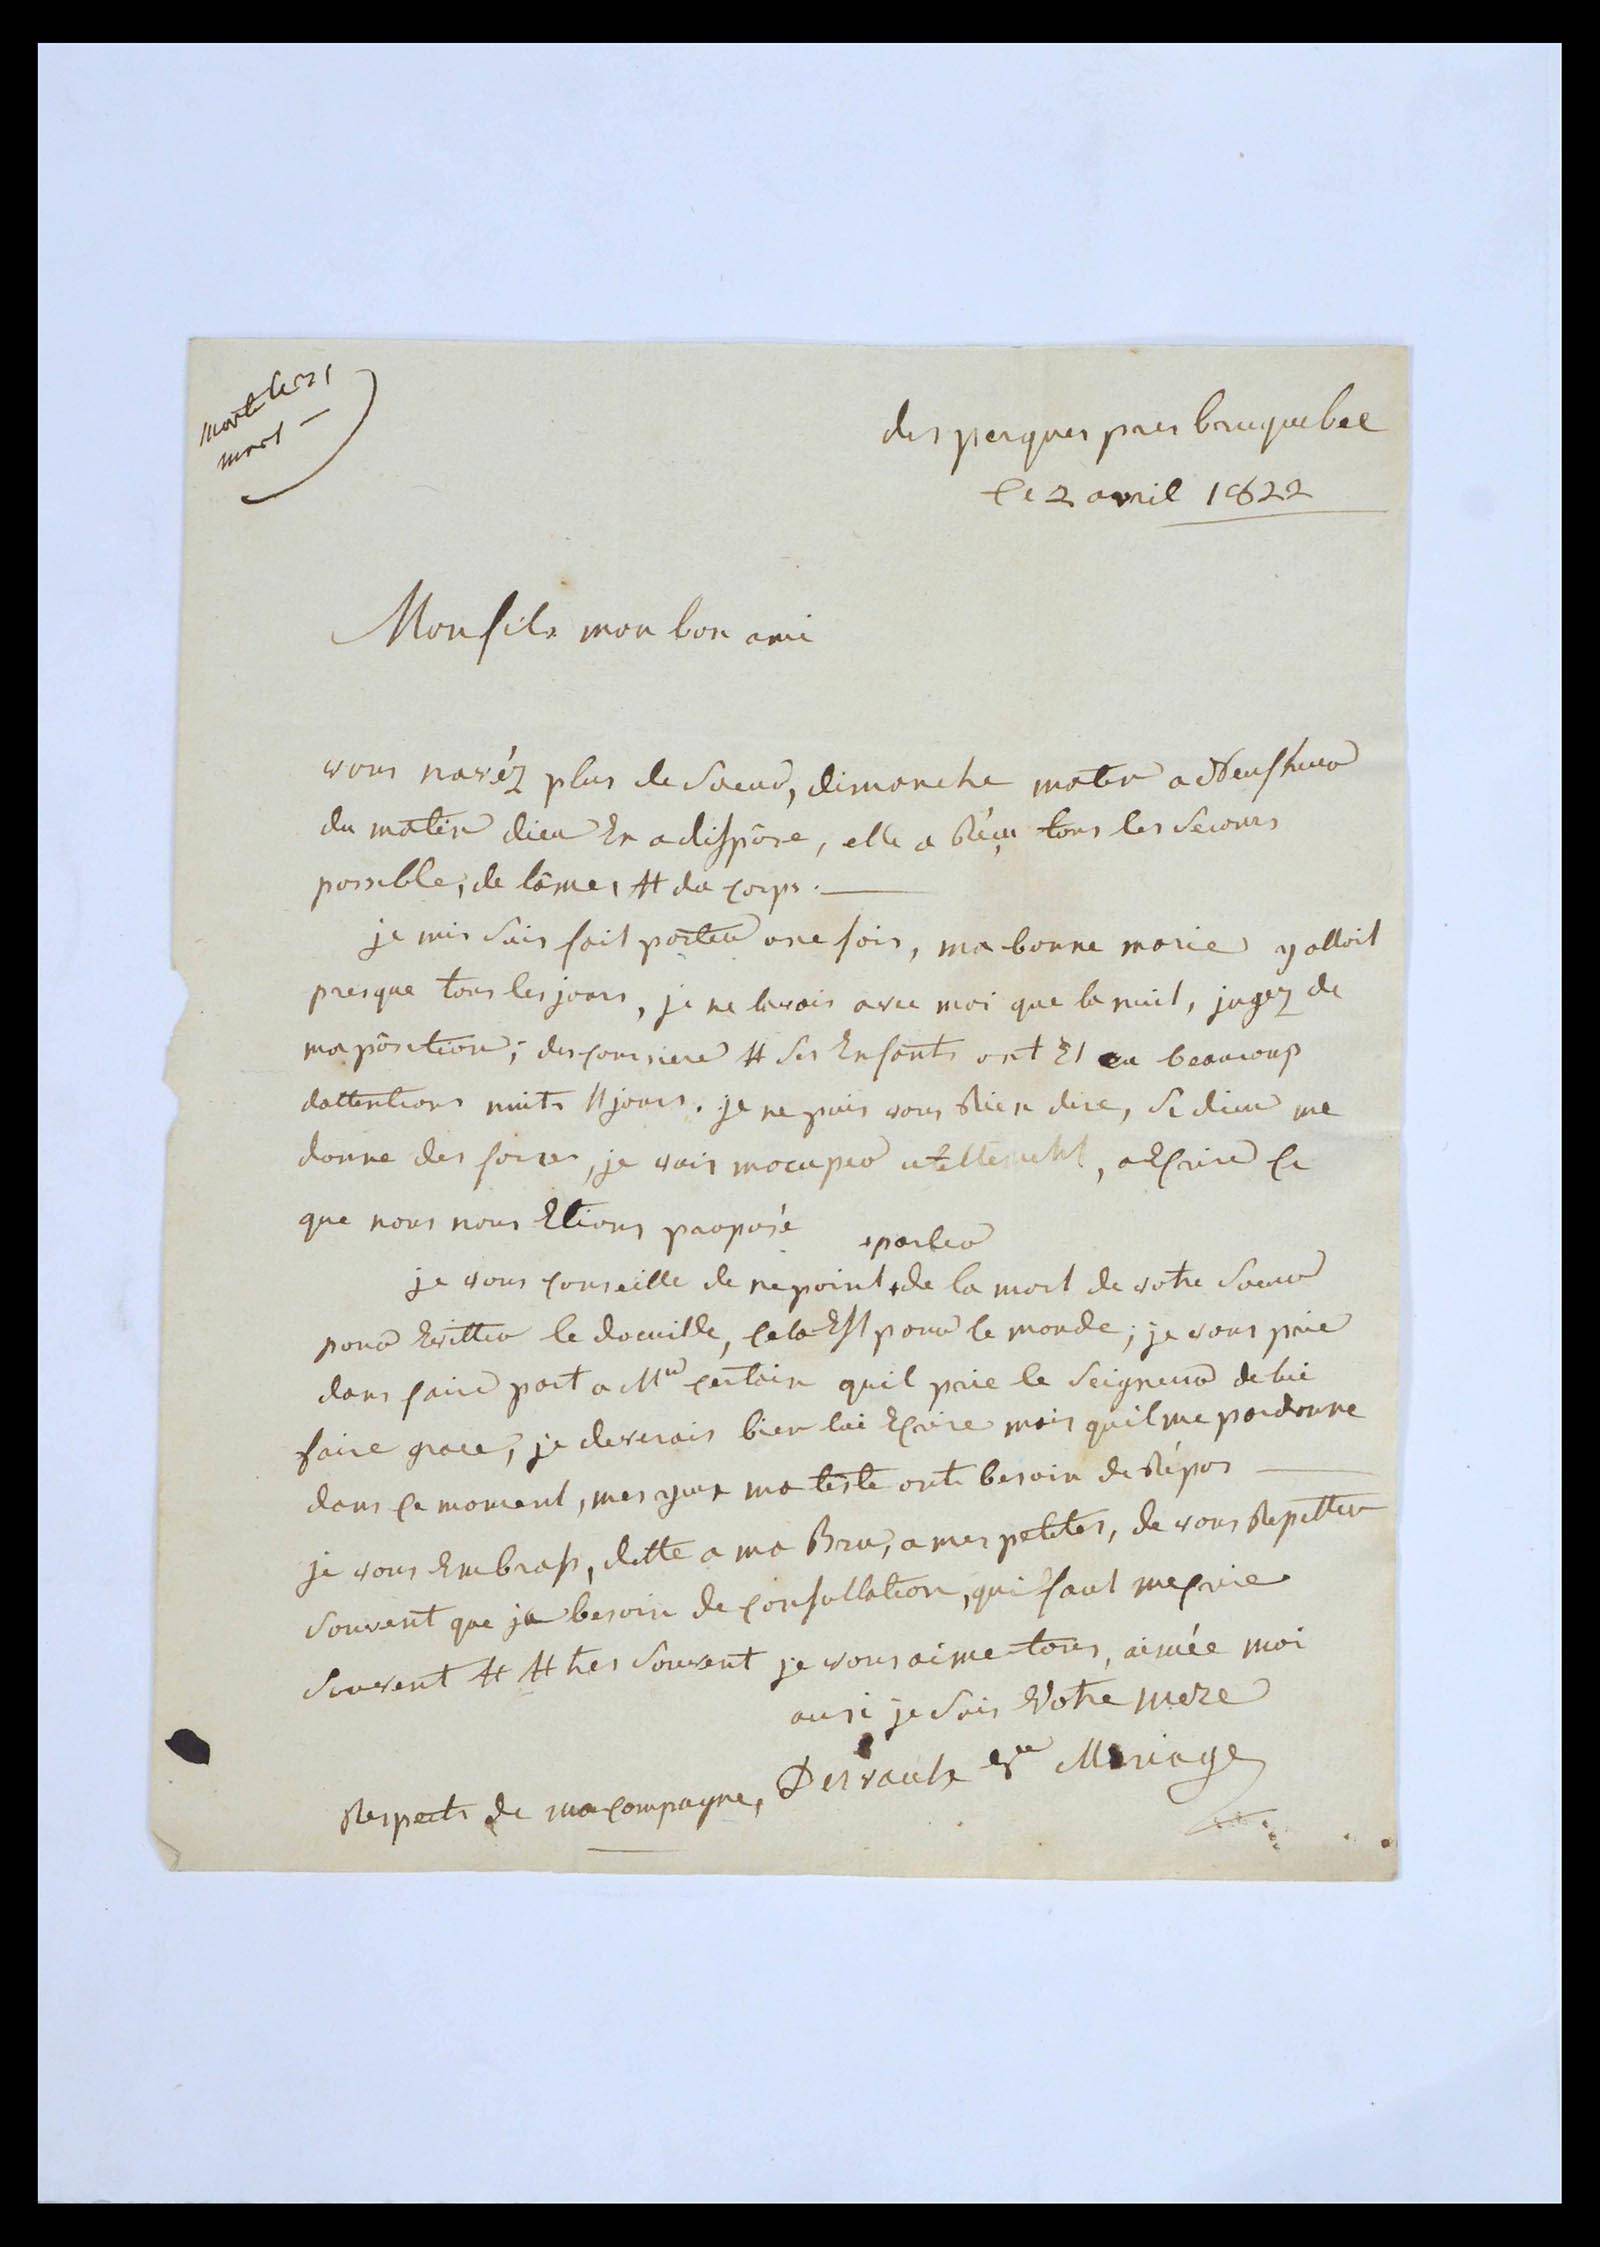 morte le 31
mars —
des perques pres bruquebec
le 2 avril 1822
Mon fils mon bon ami
vous navéz plus de Soeur, dimanche matin a Neuf heur
du matin dieu En a dispôse, elle a Réçu tous les Secours
possible, de lâme, et du corps.
je mis Suis fait porter une fois, ma bonne marie y alloit
presque tous les jours, je ne lavois avec moi que la nuit, jugez de
ma pôsition; et Ses Enfants ont Et eu beaucoup
dattentions nuits et jours. je ne puis vous Rien dire, Si dieu me
donne des forces, je vais mocuper utillement, a Ecrire ce
que nous nous Etions proposé
+ parler
je vous conseille de ne point + de la mort de votre Soeur
pour Evitter le doeuille, cela Est pour le monde; je vous prie
dans faire part a Mr certain quil prie le Seigneur de lui
faire grace, je deverais bien lui Ecrire mais quil me pardonne
dans ce moment, mes yeux ma teste ont besoin de Répos
je vous Embrass, ditte a ma Bru, a mes petites, de vous Repetter
Souvent que ja besoin de consollation, qui faut mecrire
Souvent et et tres Souvent je vous aime tous, aimée moi
ausi je Suis Votre mere
Respects de ma compagne, Desvaulx Mariage